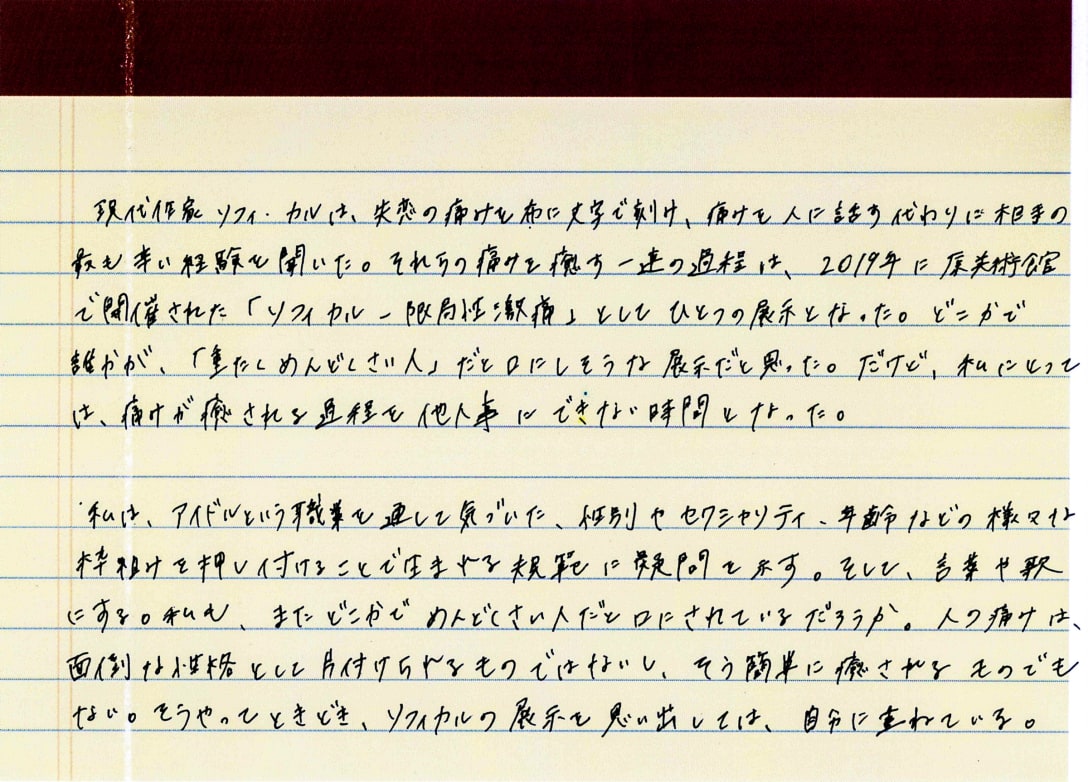 現代作家ソフィ・カルは、失恋の痛みを布に文字で刻み、痛みを人に話す代わりに相手の
最も辛い経験を聞いた。それらの痛みを癒す一連の過程は、2019年に原美術館
で開催された「ソフィカル―限局性激痛」としてひとつの展示となった。どこかで
誰かが、「重たくめんどくさい人」だと口にしそうな展示だと思った。だけど、私にとって
は、痛みが癒される過程を他人事にできない時間となった。
私は、アイドルという職業を通して気づいた、性別やセクシャリティ、年齢などの様々な
枠組みを押し付けることで生まれる規範に疑問を示す。そして、言葉や歌
にする。私も、またどこかでめんどくさい人だと口にされているだろうか。人の痛みは、
面倒な性格として片付けられるものではないし、そう簡単に癒されるものでも
ない。そうやってときどき、ソフィカルの展示を思い出しては、自分に重ねている。